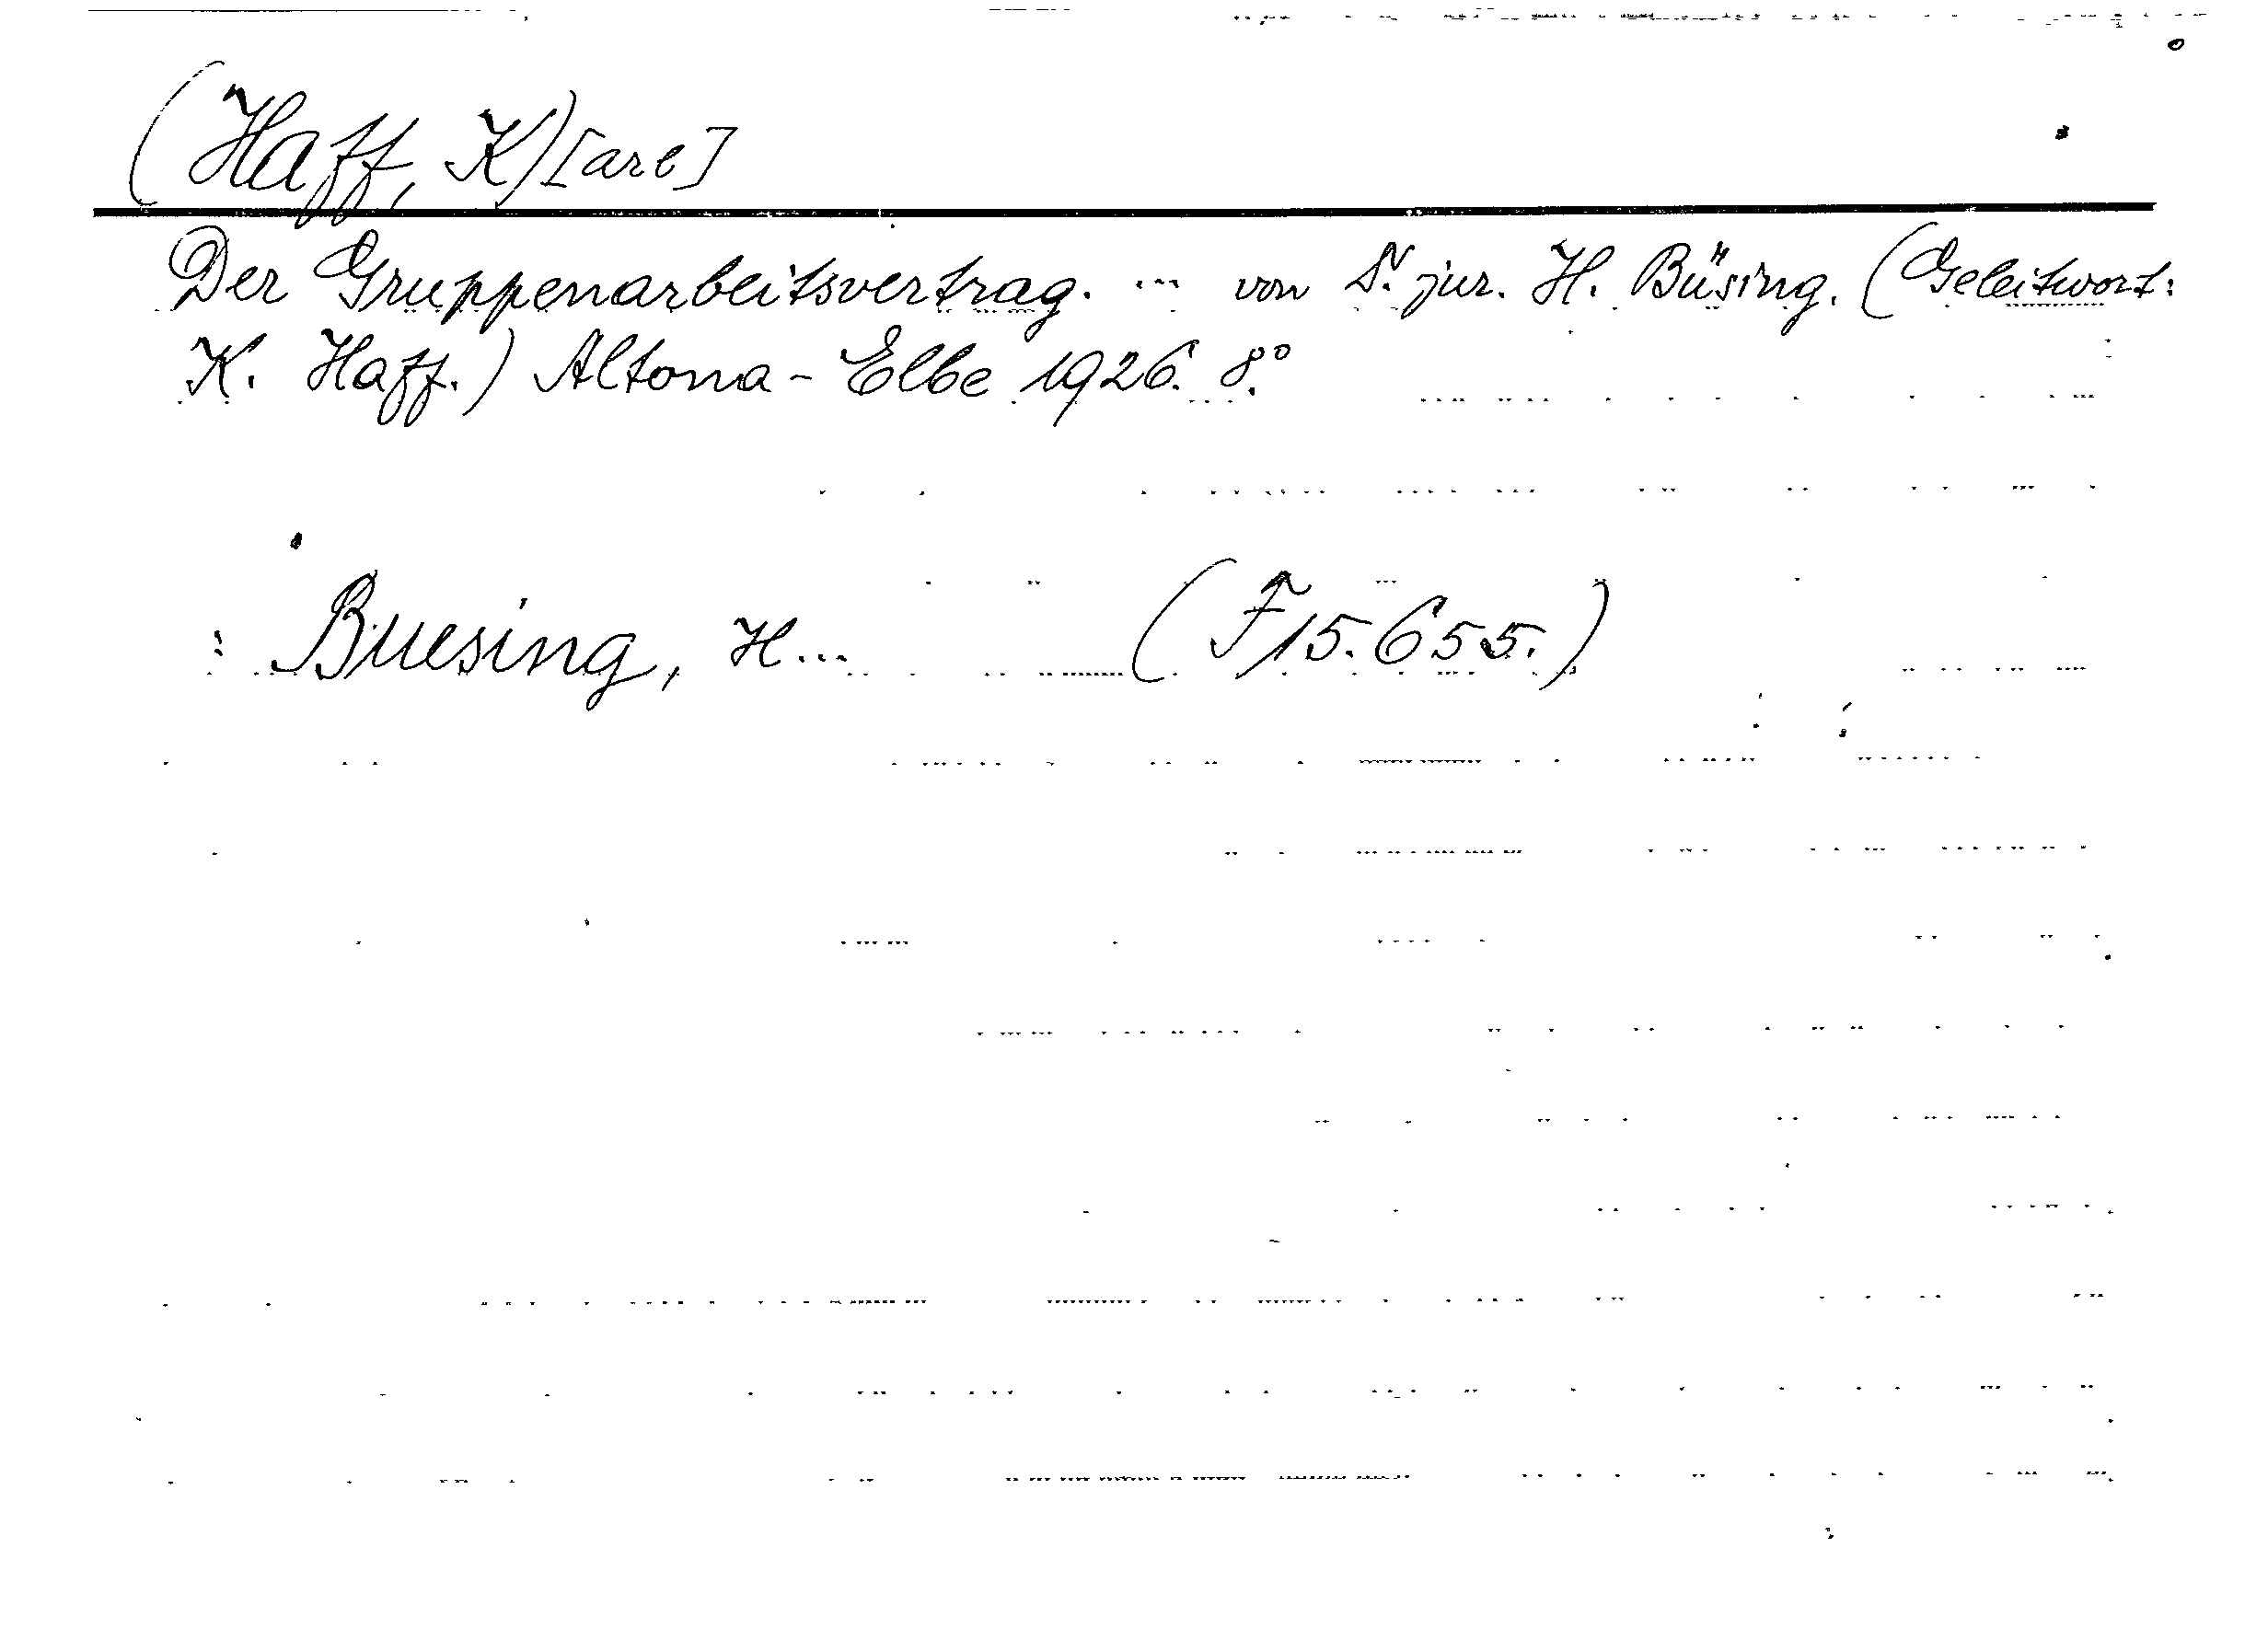 (Haff, K)[arl]
Der Gruppenarbeitsvertrag. ... von Dr. jur. H. Büsing. (Geleitwort:
K. Haff.) Altona-Elbe 1926. 8.°
: Buesing, H... (F 15.655.)